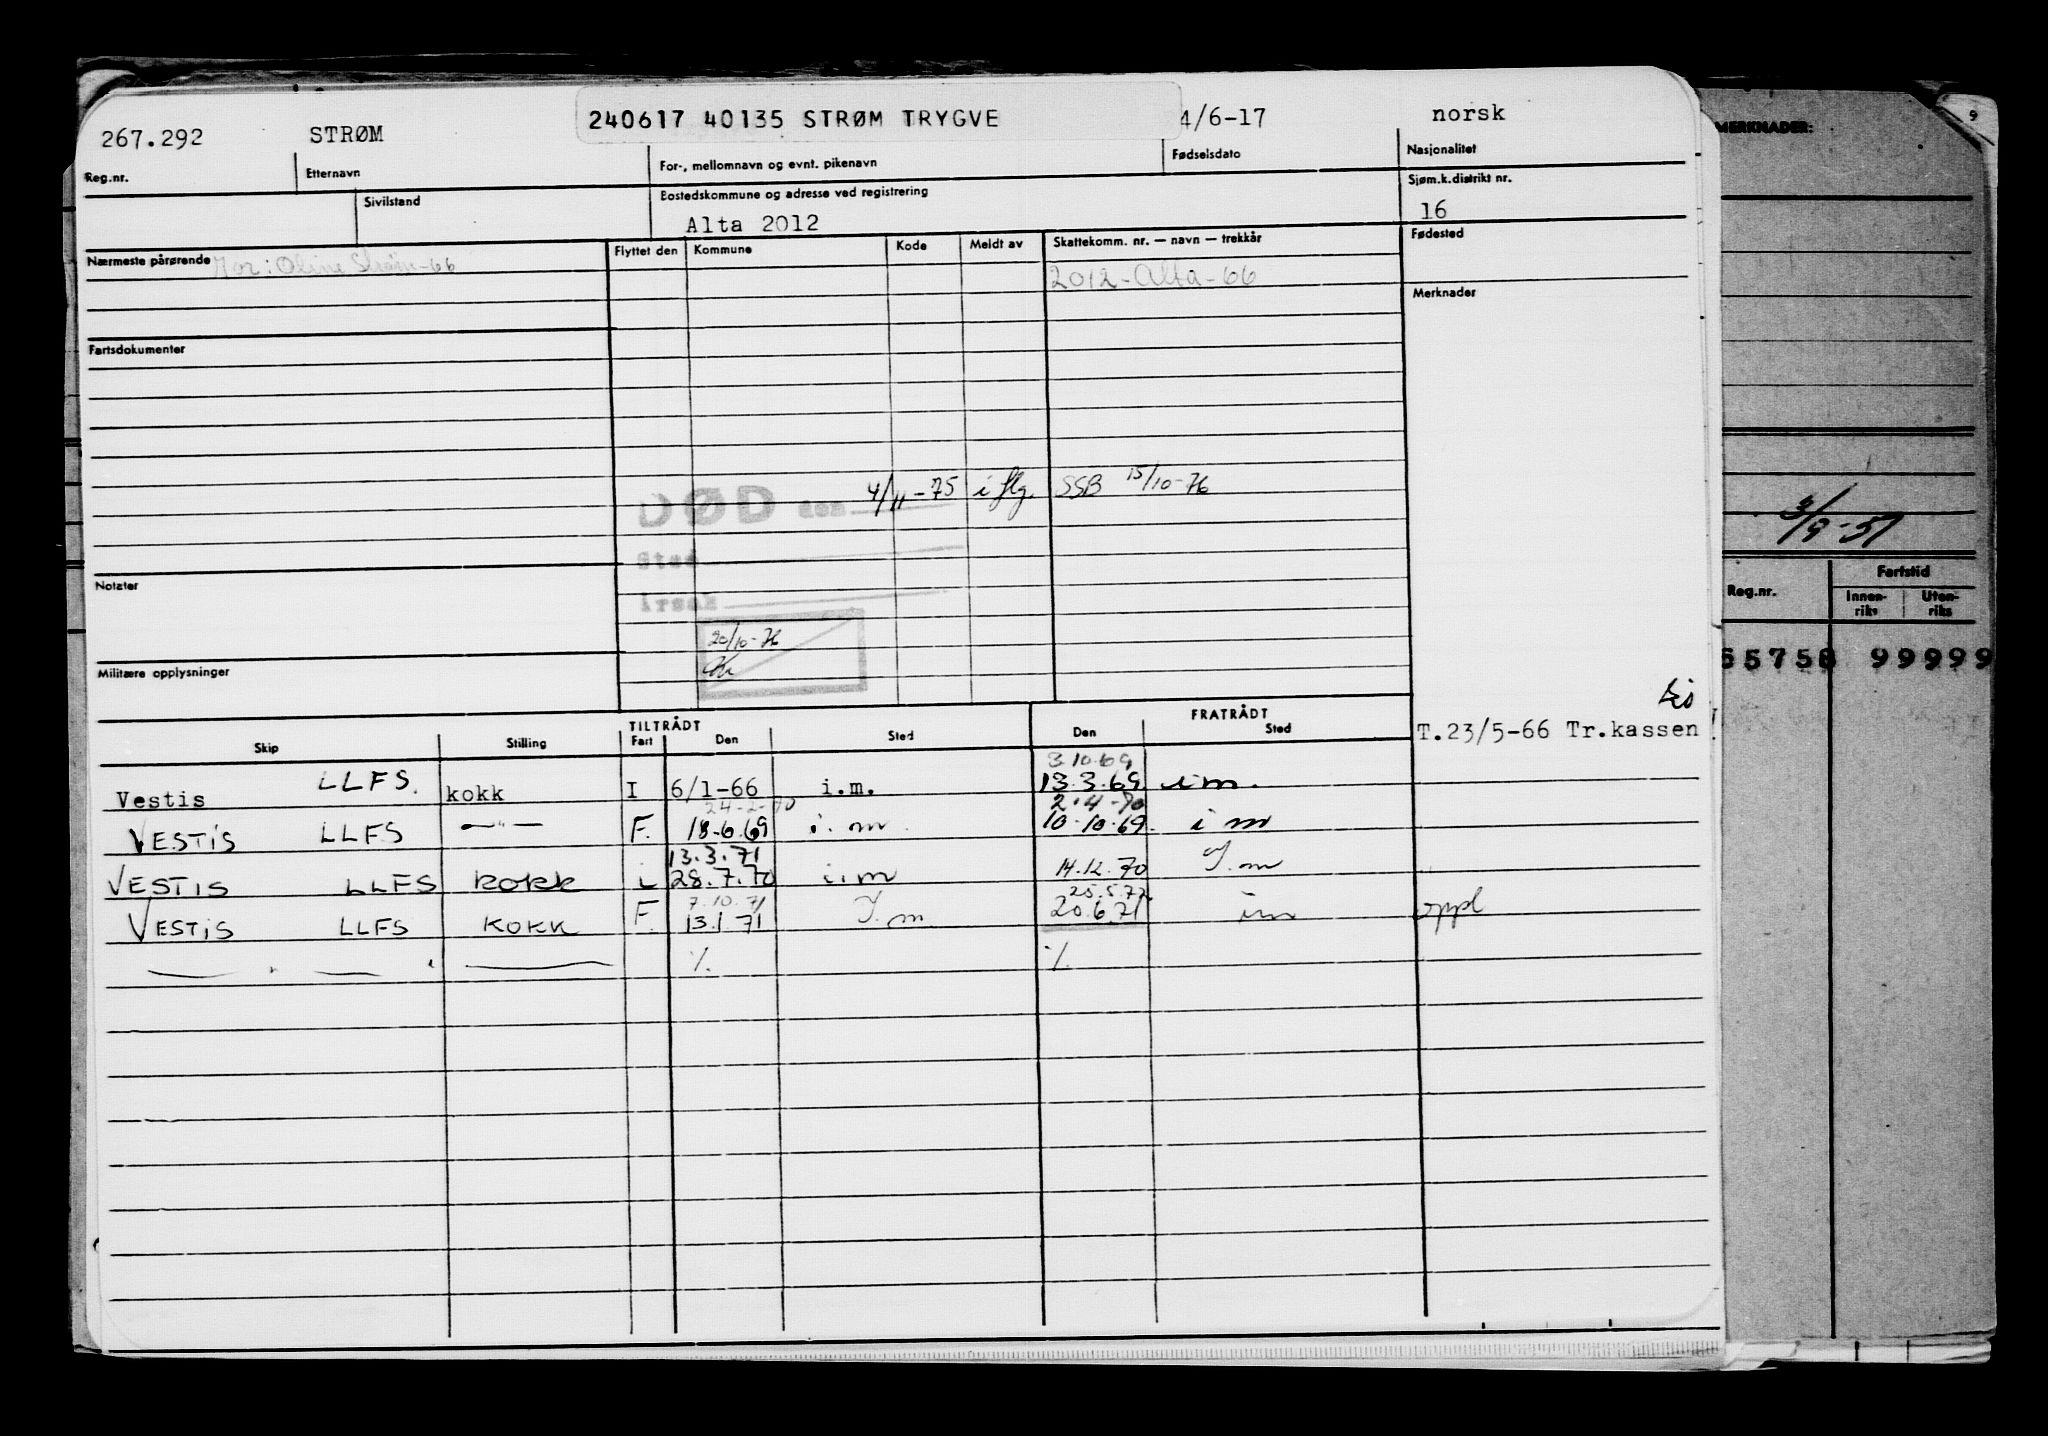 240617 40135 STRØM TRYGVE
267.292 STRØM 4/6-17 norsk
Reg.nr. Etternavn For-, mellomnavn og evnt. pikenavn Fødselsdato Nasjonalitet
Sivilstand Bostedskommune og adresse ved registrering Sjøm.k.distrikt nr.
Alta 2012 16
Nærmeste pårørende Mor: Oline Strøm-66 Flyttet den Kommune Kode Meldt av Skattekomm. nr. — navn — trekkår Fødested
2012-Alta-66
Merknader
Fartsdokumenter
DØD den 4/11-75 i flg. SSB 15/10-76
Sted
Årsak
Notater
20/10-76
Militære opplysninger
TILTRÅDT FRATRÅDT
Skip Stilling Fart Den Sted Den Sted
T.23/5-66 Tr.kassen
3.10.69
Vestis LLFS. kokk I 6/1-66 i.m. 13.3.69 i m.
24-2-70 2.4-70
VESTIS LLFS —"— F. 18-6.69 i. m. 10.10.69. i m
13.3.71
VESTIS LLFS KOKK i 28.7.70 i.m 14.12.70 I.m
7.10.71 25.5.72
VESTIS LLFS KOKK F. 13.1.71 I.m 20.6.71 im oppl
— " — — " — ——— ·/. ·/.
MERKNADER:
9
3/9-51
Reg.nr. Fartstid
Innen-riks Uten-riks
55758 99999